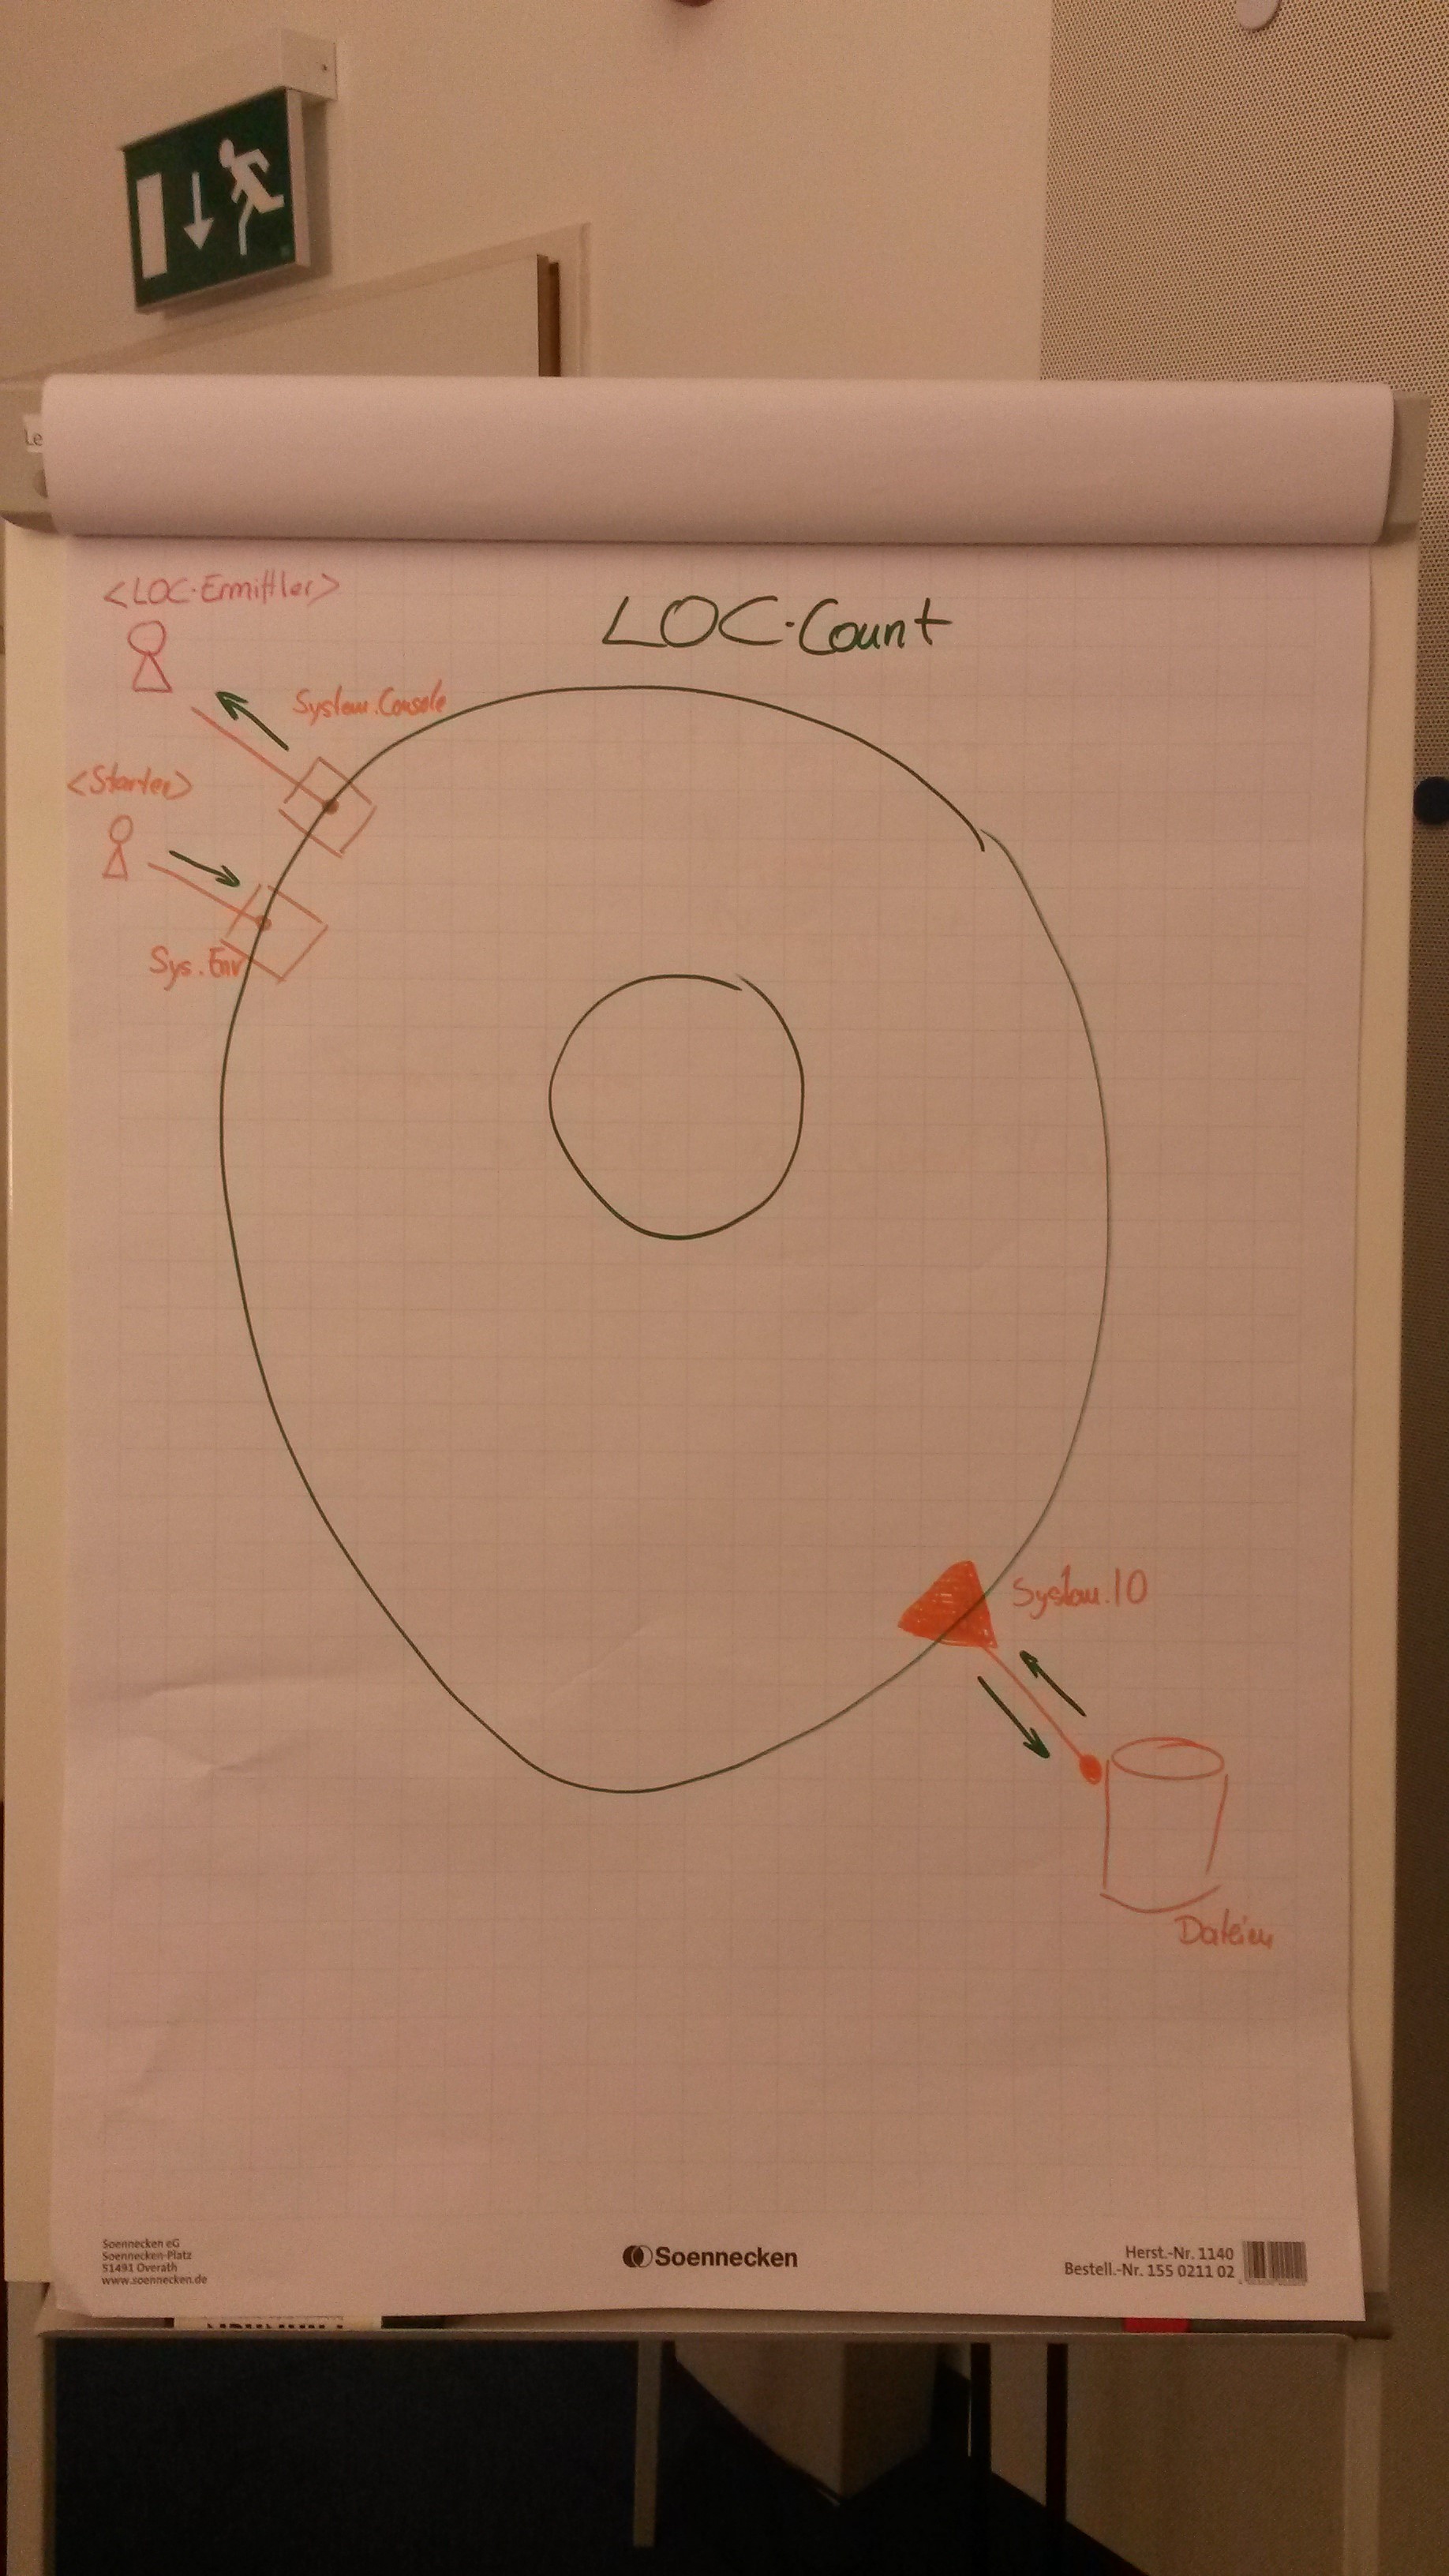 Le
<LOC-Ermittler>
LOC-Count
System.Console
<Starter>
Sys.Env
System.IO
Dateien
Soennecken eG
Soennecken-Platz
51491 Overath
www.soennecken.de
Soennecken
Herst.-Nr. 1140
Bestell.-Nr. 155 0211 02